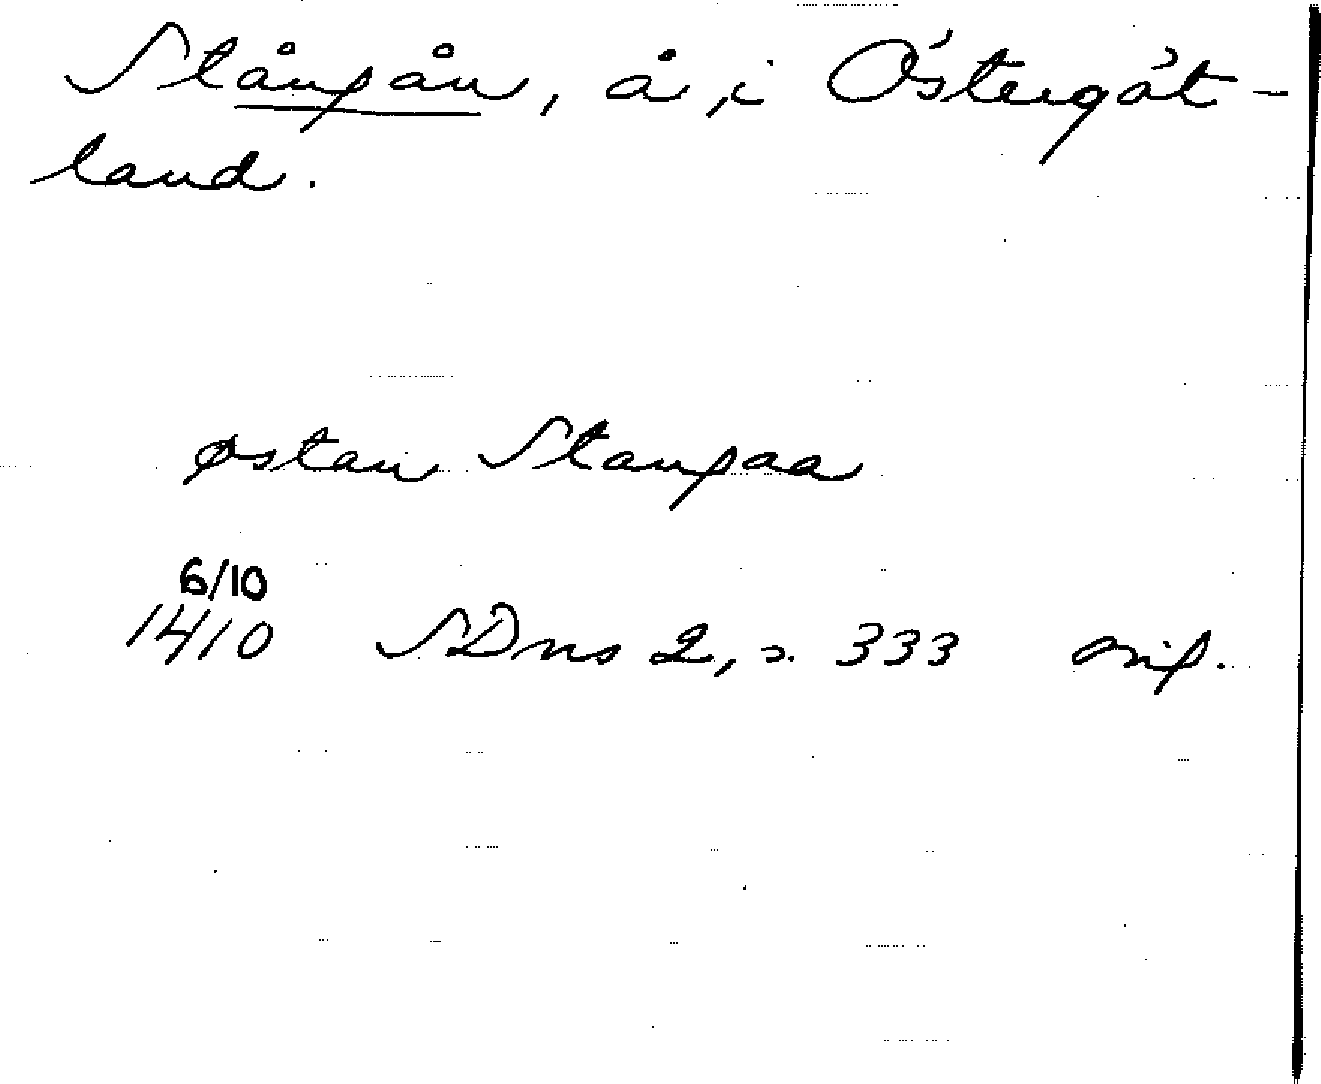 Stångån, å, i Östergöt-
land.
østan Stangaa
6/10
14/10 SDns 2, s. 333 orig.